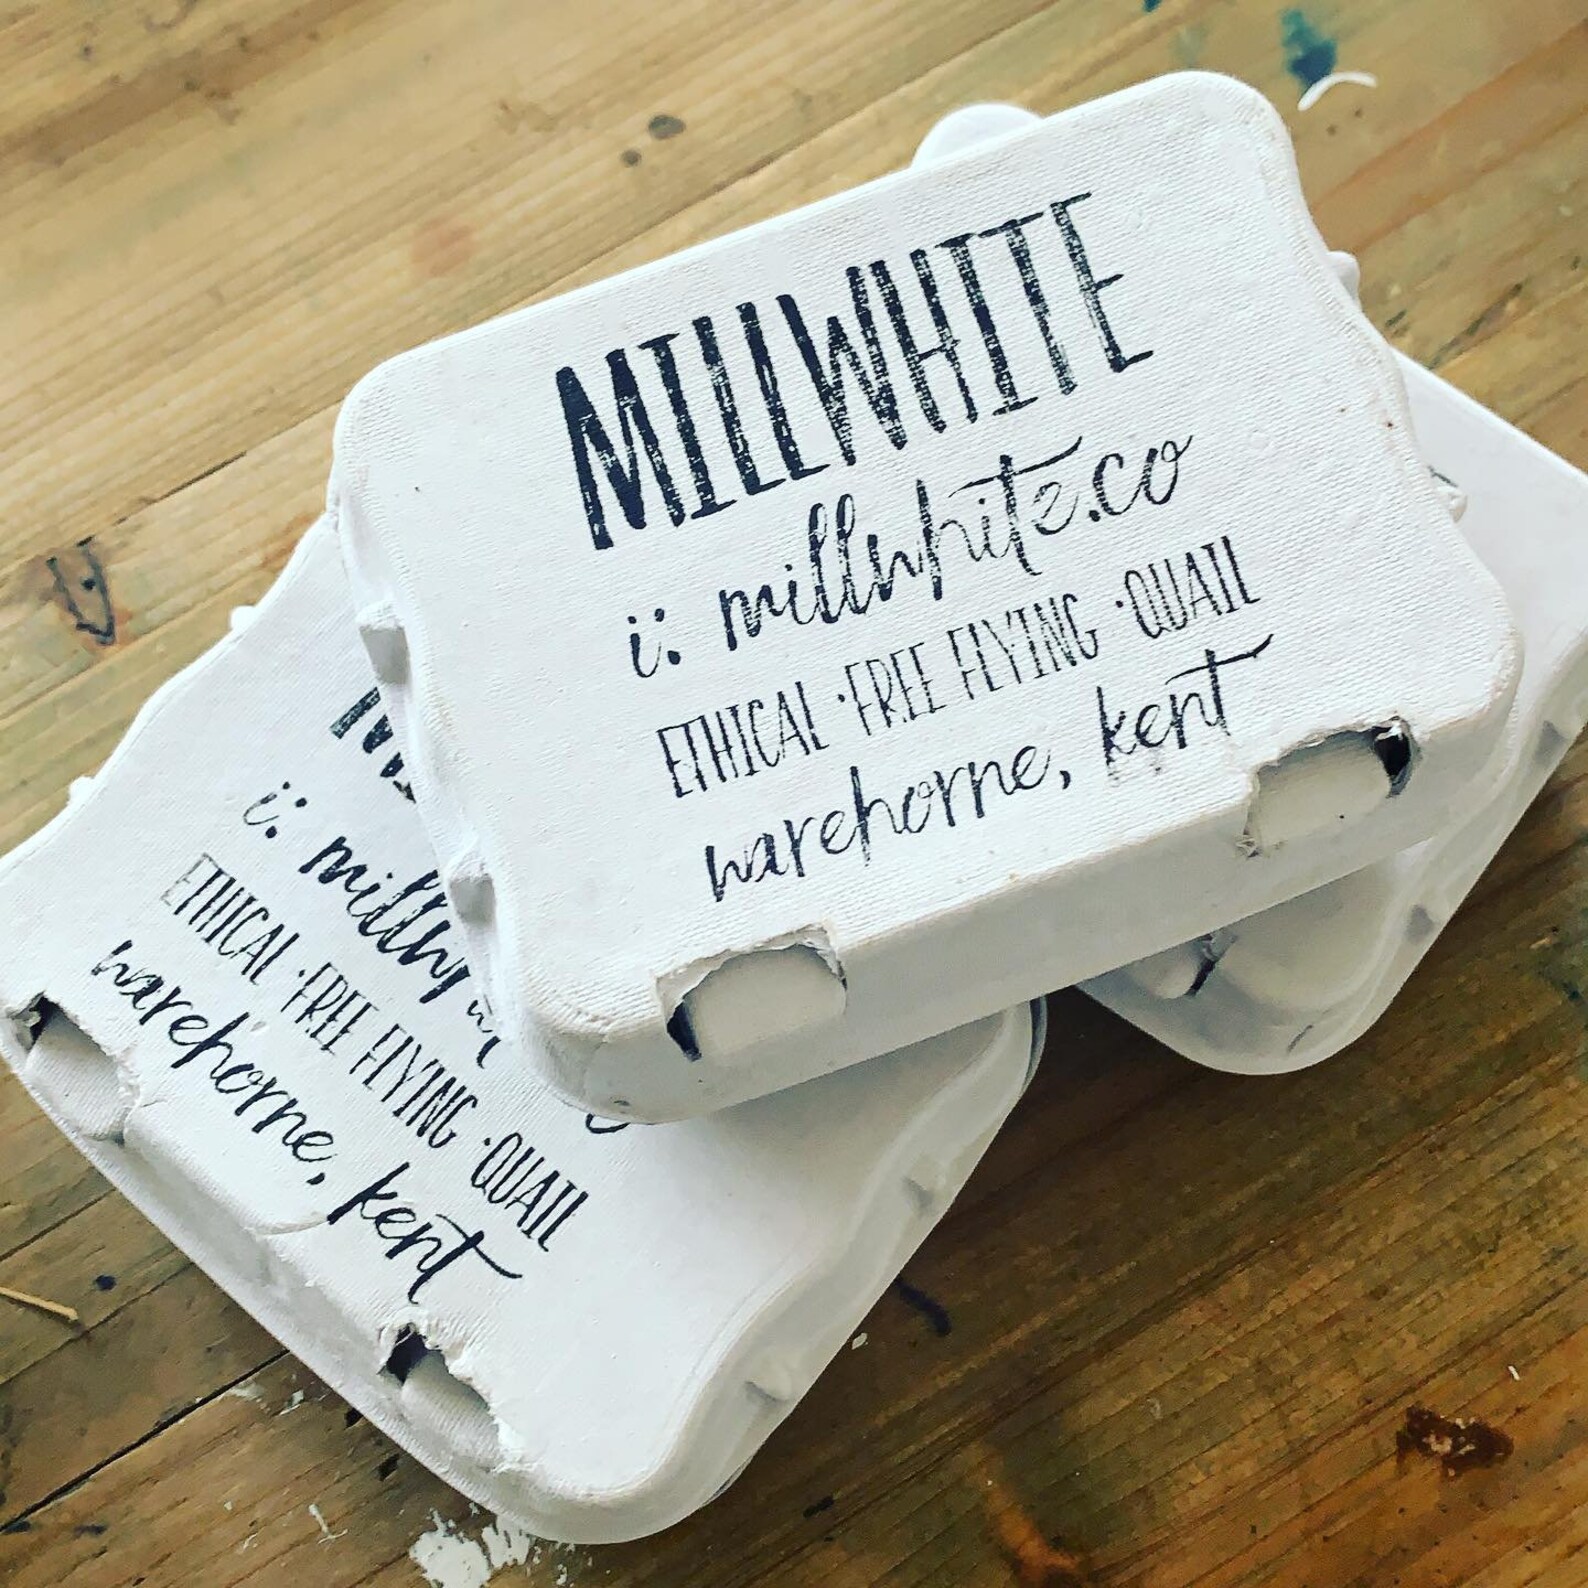 MILLWHITE
i: millwhite.co
ETHICAL · FREE FLYING · QUAIL
warehorne, kent
i: millwh
ETHICAL · FREE FLYING · QUAIL
warehorne, kent